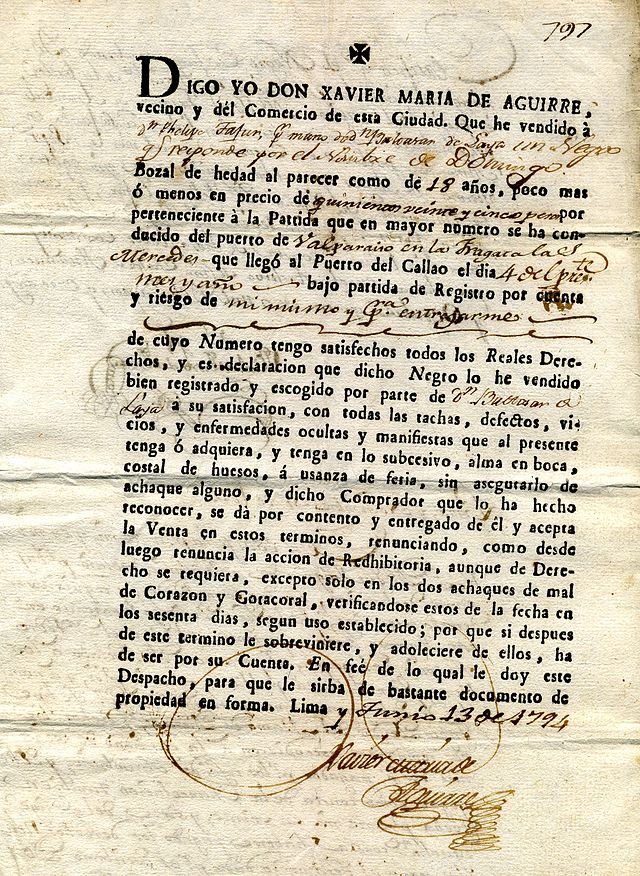 797
DIGO YO DON XAVIER MARIA DE AGUIRRE,
vecino y dél Comercio de esta Ciudad. Que he vendido à
Dn Phelipe Jafur, pr mano de Dn Baltasar de Laya un Negro
qe responde por el Nombre de Domingo
Bozal de hedad al parecer como de 18 años, poco mas
ó menos en precio de quinientos veinte y cinco pesos por
perteneciente à la Partida que en mayor número se ha con-
ducido del puerto de Valparaiso en la Fragata las
Mercedes que llegó al Puerto del Callao el dia 4 del preste
mes y año bajo partida de Registro por cuenta
y riesgo de mi mismo y pa entregarme
de cuyo Número tengo satisfechos todos los Reales Dere-
chos, y es declaracion que dicho Negro lo he vendido
bien registrado y escogido por parte de Dn Baltasar de
Laya á su satisfacion, con todas las tachas, defectos, vi-
cios, y enfermedades ocultas y manifiestas que al presente
tenga ó adquiera, y tenga en lo subcesivo, alma en boca,
costal de huesos, á usanza de feria, sin asegurarlo de
achaque alguno, y dicho Comprador que lo ha hecho
reconocer, se dá por contento y entregado de él y acepta
la Venta en estos terminos, renunciando, como desde
luego renuncia la accion de Redhibitoria, aunque de Dere-
cho se requiera, excepto solo en los dos achaques de mal
de Corazon y Gotacoral, verificandose estos de la fecha en
los sesenta dias, segun uso establecido; por que si despues
de este termino le sobreviniere, y adoleciere de ellos, ha
de ser por su Cuenta. En feé de lo qual le doy este
Despacho, para que le sirba de bastante documento de
propiedad en forma. Lima y Junio 13 de 1794
Xavier Maria de
Aguirre